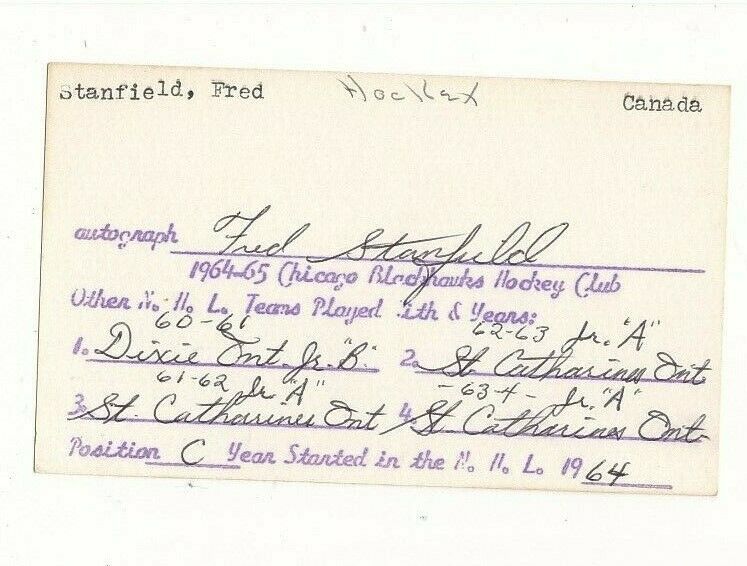 Stanfield, Fred Hockey Canada
autograph Fred Stanfield
1964-65 Chicago Blackhawks Hockey Club
Other N. H. L. Teams Played With & Years:
60-61 62-63 Jr. "A"
1. Dixie Ont. Jr. "B" 2. St. Catharines Ont.
61-62 Jr. "A" -63-4- Jr. "A"
3. St. Catharines Ont 4. St. Catharines Ont-
Position C Year Started in the N. H. L. 19 64